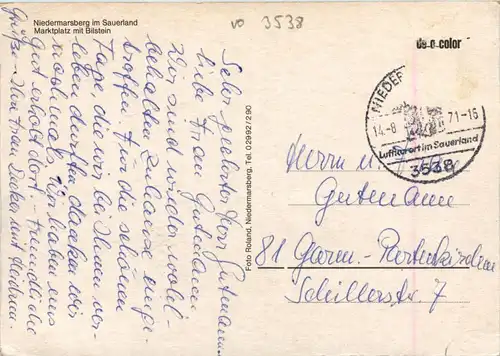 Niedermarsberg im Sauerland
Marktplatz mit Bilstein
vo 3538
de-o-color
NIEDER
14.-8. 71-16
Luftkurort im Sauerland
3538
Sehr geehrter Herr Gutmann,
liebe Frau Gutmann.
Wir sind wieder wohl-
behalten Zuhause einge-
troffen. Für die schönen
Tage, die wir bei Ihnen ver-
leben durften danken wir
nochmals. Wir haben uns
gut erholt dort. Freundliche
Grüße Ihre Frau mit
Foto Roland, Niedermarsberg, Tel. 02992/290
Herrn u. Frau
Gutmann
81 Garm.-Partenkirchen
Schillerstr. 7